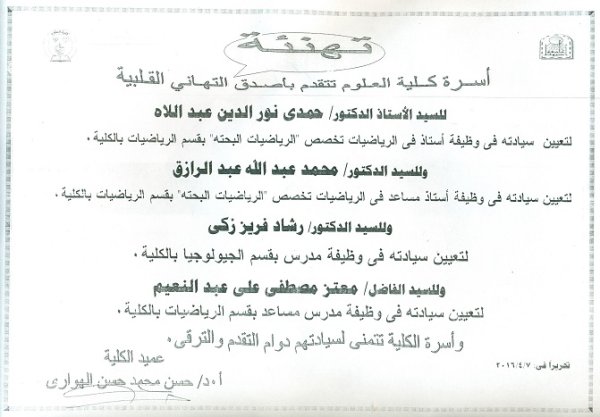 تهنئة
أسرة كلية العلوم تتقدم بأصدق التهاني القلبية
للسيد الأستاذ الدكتور/ حمدى نور الدين عبد اللاه
لتعيين سيادته فى وظيفة أستاذ فى الرياضيات تخصص "الرياضيات البحته" بقسم الرياضيات بالكلية .
وللسيد الدكتور/ محمد عبد الله عبد الرازق
لتعيين سيادته فى وظيفة أستاذ مساعد فى الرياضيات تخصص "الرياضيات البحته" بقسم الرياضيات بالكلية .
وللسيد الدكتور/ رشاد فريز زكى
لتعيين سيادته فى وظيفة مدرس بقسم الجيولوجيا بالكلية .
وللسيد الفاضل/ معتز مصطفى على عبد النعيم
لتعيين سيادته فى وظيفة مدرس مساعد بقسم الرياضيات بالكلية .
وأسرة الكلية تتمنى لسيادتهم دوام التقدم والترقى .
عميد الكلية
تحريراً فى: ٢٠١٦/٤/٧
أ.د/ حسن محمد حسن الهوارى